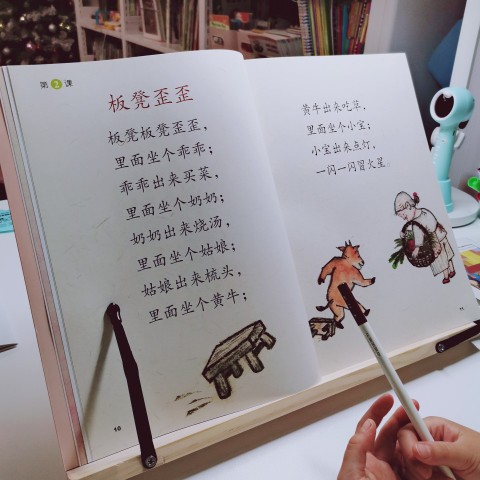 第2课
板凳歪歪
板凳板凳歪歪，
里面坐个乖乖；
乖乖出来买菜，
里面坐个奶奶；
奶奶出来烧汤，
里面坐个姑娘；
姑娘出来梳头，
里面坐个黄牛；
10
黄牛出来吃草，
里面坐个小宝；
小宝出来点灯，
一闪一闪冒火星。
11